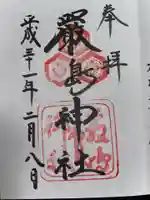 奉拝
嚴島神社
平成三十一年二月八日